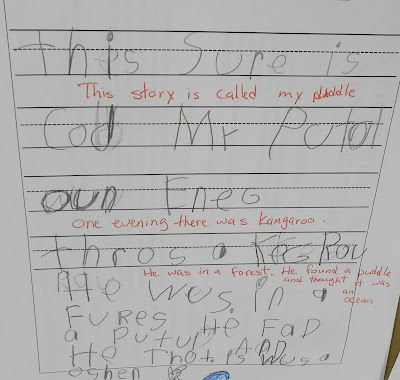 this Sure is
This story is called my puddle
Cod Mr Putol
oun Eneg
One evening there was kangaroo.
thros a KesRoy
He was in a forest. He found a puddle
and thought it was
an
ocean.
He wes. in a
FuRes He FaD
a Putup AND
He Thot is wus a
oshen